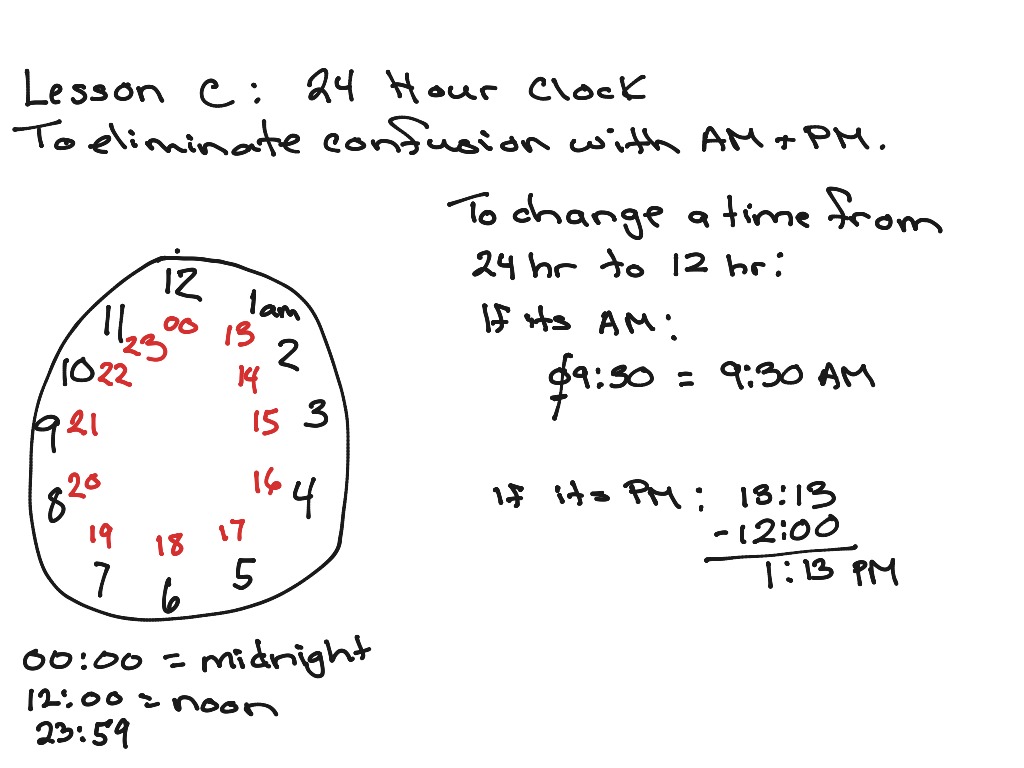 Lesson C: 24 Hour Clock
To eliminate confusion with AM + PM.
To change a time from
24 hr to 12 hr:
If its AM:
09:30 = 9:30 AM
If its PM: 13:13
-12:00
1:13 PM
12
1am
2
3
4
5
6
7
8
9
10
11
00
13
14
15
16
17
18
19
20
21
22
23
00:00 = midnight
12:00 = noon
23:59